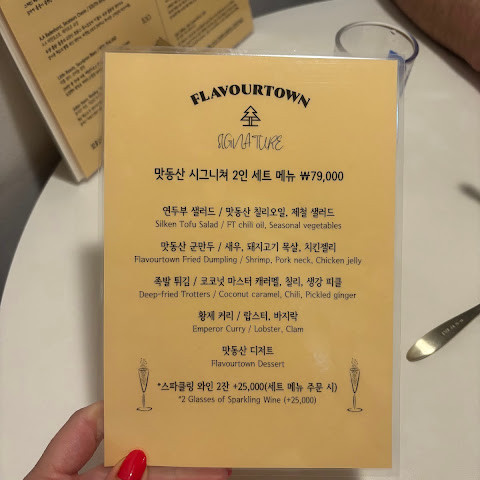 FLAVOURTOWN
SIGNATURE
맛동산 시그니쳐 2인 세트 메뉴 ₩79,000
연두부 샐러드 / 맛동산 칠리오일, 제철 샐러드
Silken Tofu Salad / FT chili oil, Seasonal vegetables
맛동산 군만두 / 새우, 돼지고기 목살, 치킨젤리
Flavourtown Fried Dumpling / Shrimp, Pork neck, Chicken jelly
족발 튀김 / 코코넛 마스터 캐러멜, 칠리, 생강 피클
Deep-fried Trotters / Coconut caramel, Chili, Pickled ginger
황제 커리 / 랍스터, 바지락
Emperor Curry / Lobster, Clam
맛동산 디저트
Flavourtown Dessert
*스파클링 와인 2잔 +25,000(세트 메뉴 주문 시)
*2 Glasses of Sparkling Wine (+25,000)